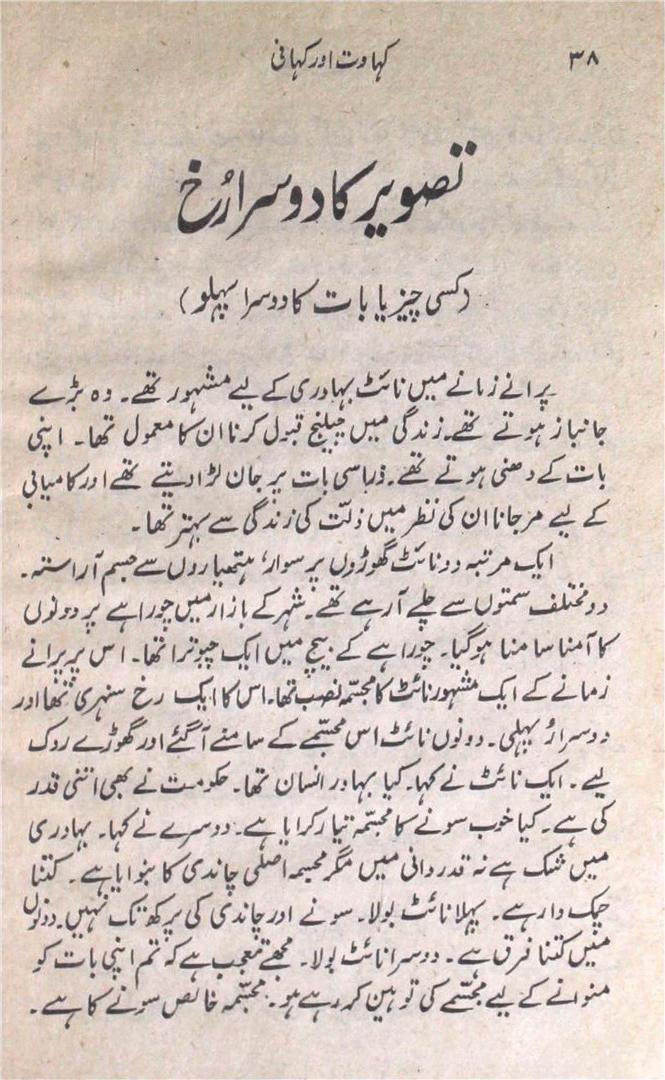 ۳۸
کہاوت اور کہانی
تصویر کا دوسرا رُخ
(کسی چیز یا بات کا دوسرا پہلو)
پرانے زمانے میں نائٹ بہادری کے لیے مشہور تھے۔ وہ بڑے
جانباز ہوتے تھے۔ زندگی میں چیلنج قبول کرنا ان کا معمول تھا۔ اپنی
بات کے دھنی ہوتے تھے۔ ذرا سی بات پر جان لڑا دیتے تھے اور کامیابی
کے لیے مرجانا ان کی نظر میں ذلّت کی زندگی سے بہتر تھا۔
ایک مرتبہ دو نائٹ گھوڑوں پر سوار، ہتھیاروں سے جسم آراستہ۔
دو مختلف سمتوں سے چلے آرہے تھے۔ شہر کے بازار میں چوراہے پر دونوں
کا آمنا سامنا ہوگیا۔ چوراہے کے بیچ میں ایک چبوترا تھا۔ اس پر پرانے
زمانے کے ایک مشہور نائٹ کا مجسّمہ نصب تھا۔ اس کا ایک رخ سنہری تھا اور
دوسرا رُپہلی۔ دونوں نائٹ اس مجسّمے کے سامنے آگئے اور گھوڑے روک
لیے۔ ایک نائٹ نے کہا۔ کیا بہادر انسان تھا۔ حکومت نے بھی اتنی قدر
کی ہے۔ کیا خوب سونے کا مجسّمہ تیار کرایا ہے۔ دوسرے نے کہا۔ بہادری
میں شک ہے نہ قدردانی میں مگر مجسمہ اصلی چاندی کا بنوایا ہے۔ کتنا
چمک دار ہے۔ پہلا نائٹ بولا۔ سونے اور چاندی کی پرکھ تک نہیں۔ دونوں
میں کتنا فرق ہے۔ دوسرا نائٹ بولا۔ مجھے تعجب ہے کہ تم اپنی بات کو
منوانے کے لیے مجسّمے کی توہین کر رہے ہو۔ مجسّمہ خالص سونے کا ہے۔